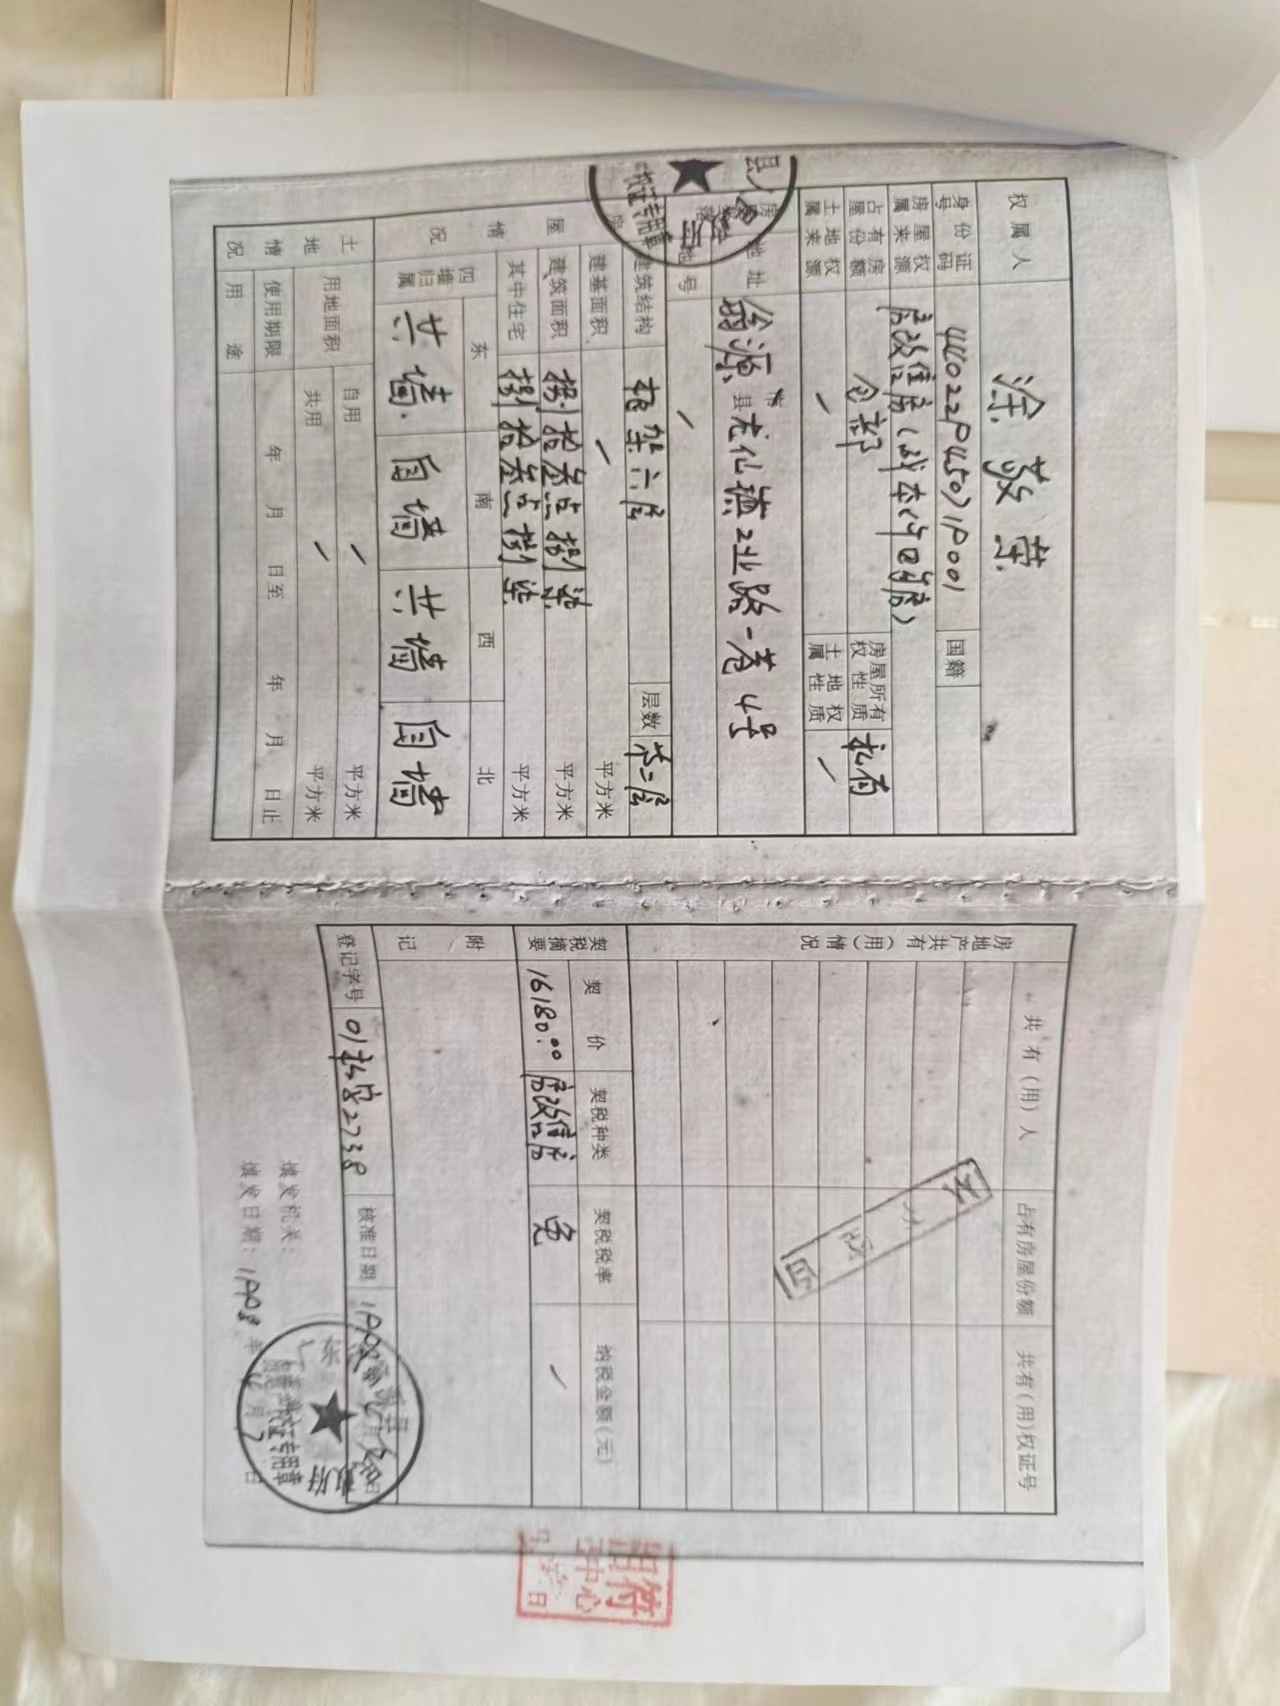 权属人 涂敬荣
身份证号码 440229450719001 国籍
房屋权属来源 房改住房(成本价购房)
占有房屋份额 全部 房屋所有权性质 私有
土地权属来源 / 土地权属性质 /
地址 翁源 市县 龙仙镇工业路一巷4号
地号 /
建筑结构 框架六层 层数 第二层
建基面积 / 平方米
建筑面积 捌拾叁点捌柒 平方米
其中住宅 捌拾叁点捌柒 平方米
房屋情况
四墙归属 东 南 西 北
共墙 自墙 共墙 自墙
土地情况
用地面积 自用 / 平方米
共用 / 平方米
使用期限 年 月 日至 年 月 日止
用途
县人
权证专用章
房地产共有(用)情况
共有(用)人 占有房屋份额 共有(用)权证号
契税摘要
契价 契税种类 契税税率 纳税金额(元)
16180.00 房改住房 免 /
附记
登记字号 01 2738 核准日期
填发机关:
填发日期: 1998年 月 7日
权证专用章
政府
相符
中心
日